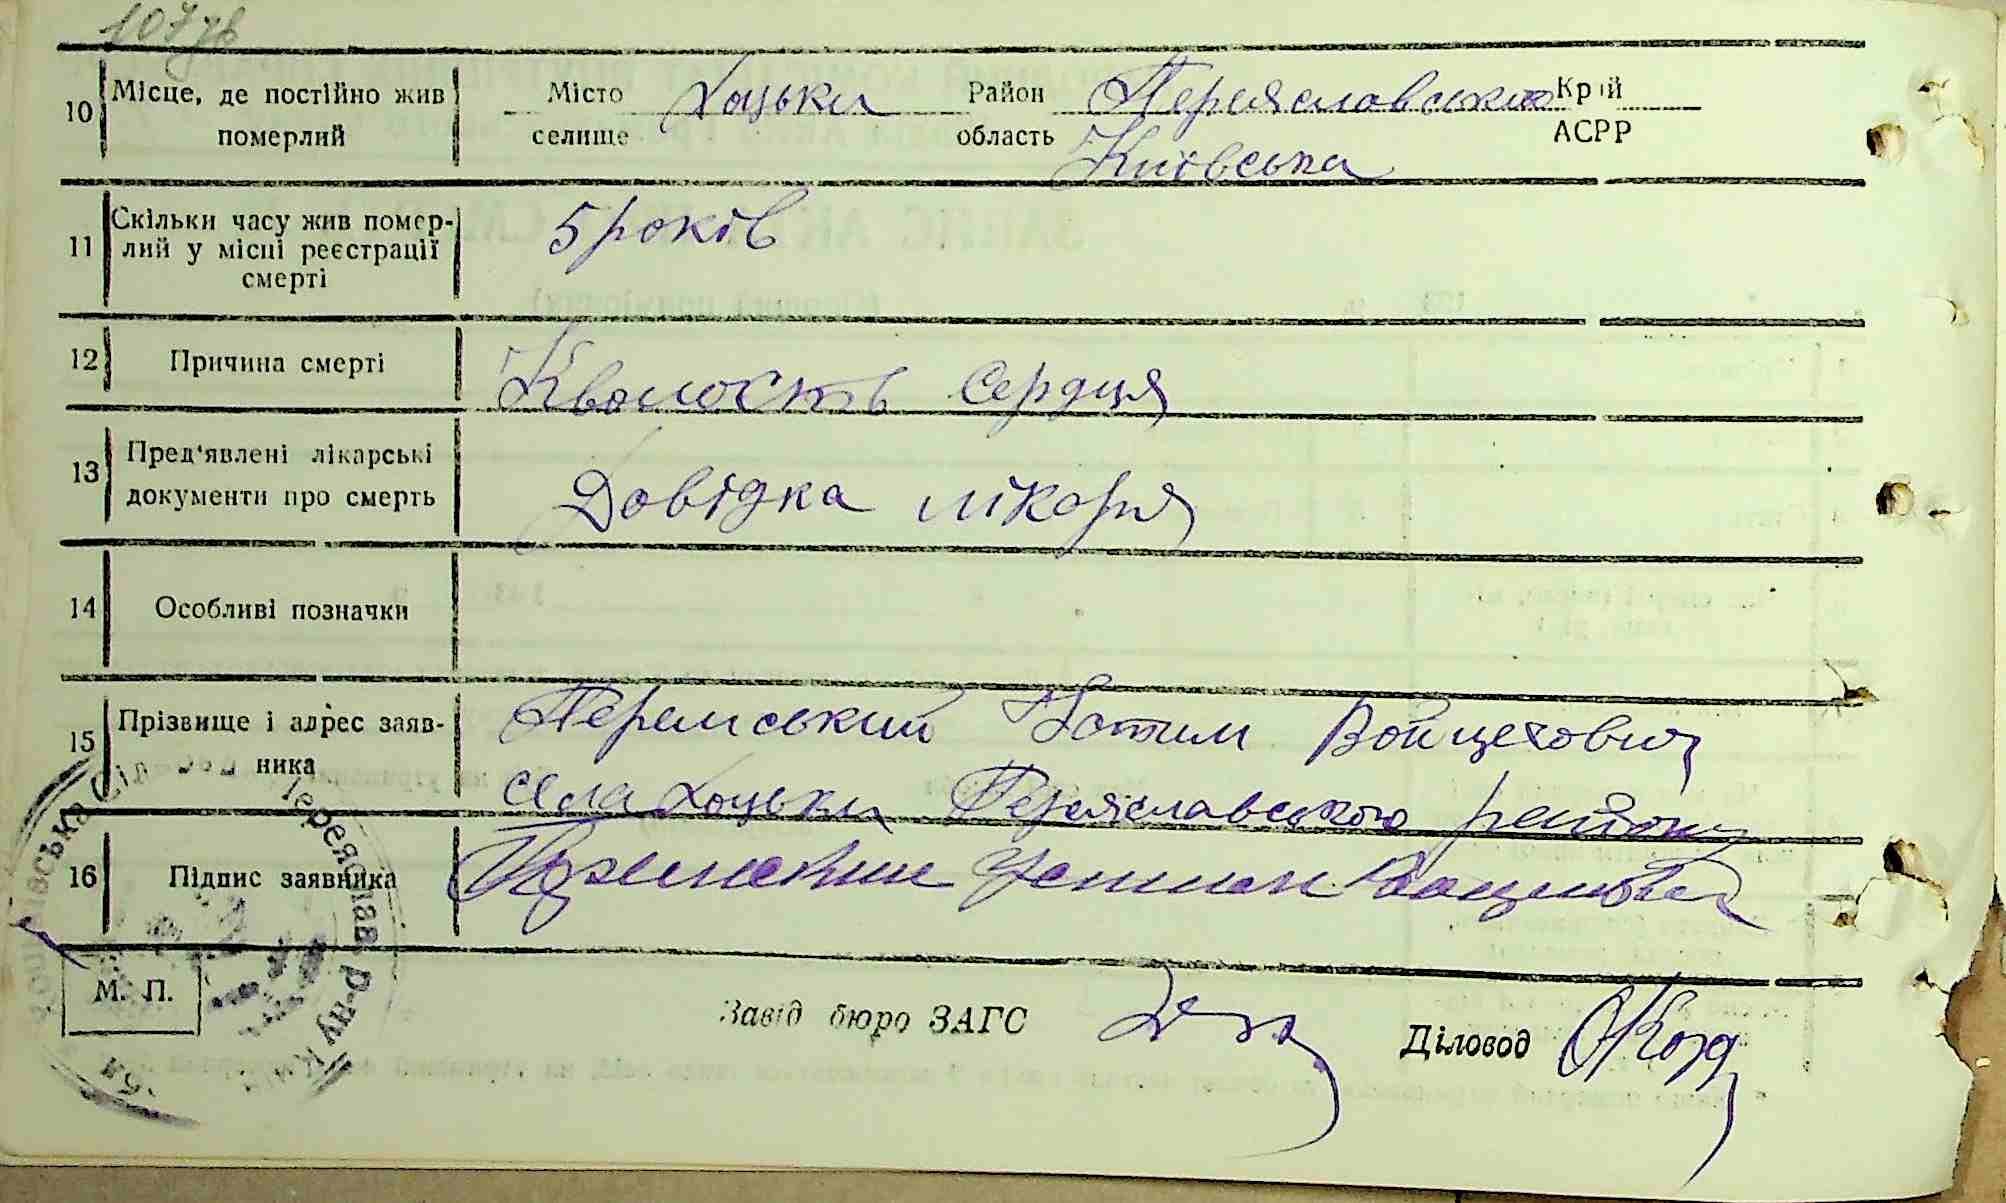 107 зв
10 Місце, де постійно жив померлий Місто селище Хоцьки Район область Переяславський Край АСРР
Київська
11 Скільки часу жив помер-
лий у місці реєстрації
смерті
5 років
12 Причина смерті Кволость сердця
13 Пред'явлені лікарські
документи про смерть
Довідка лікаря
14 Особливі позначки
15 Прізвище і адрес заяв-
ника
Перемський Войцехович
села Хоцьки Переяславського району
16 Підпис заявника
М. П.
Завід бюро ЗАГС Діловод
Переяслав. р-ну